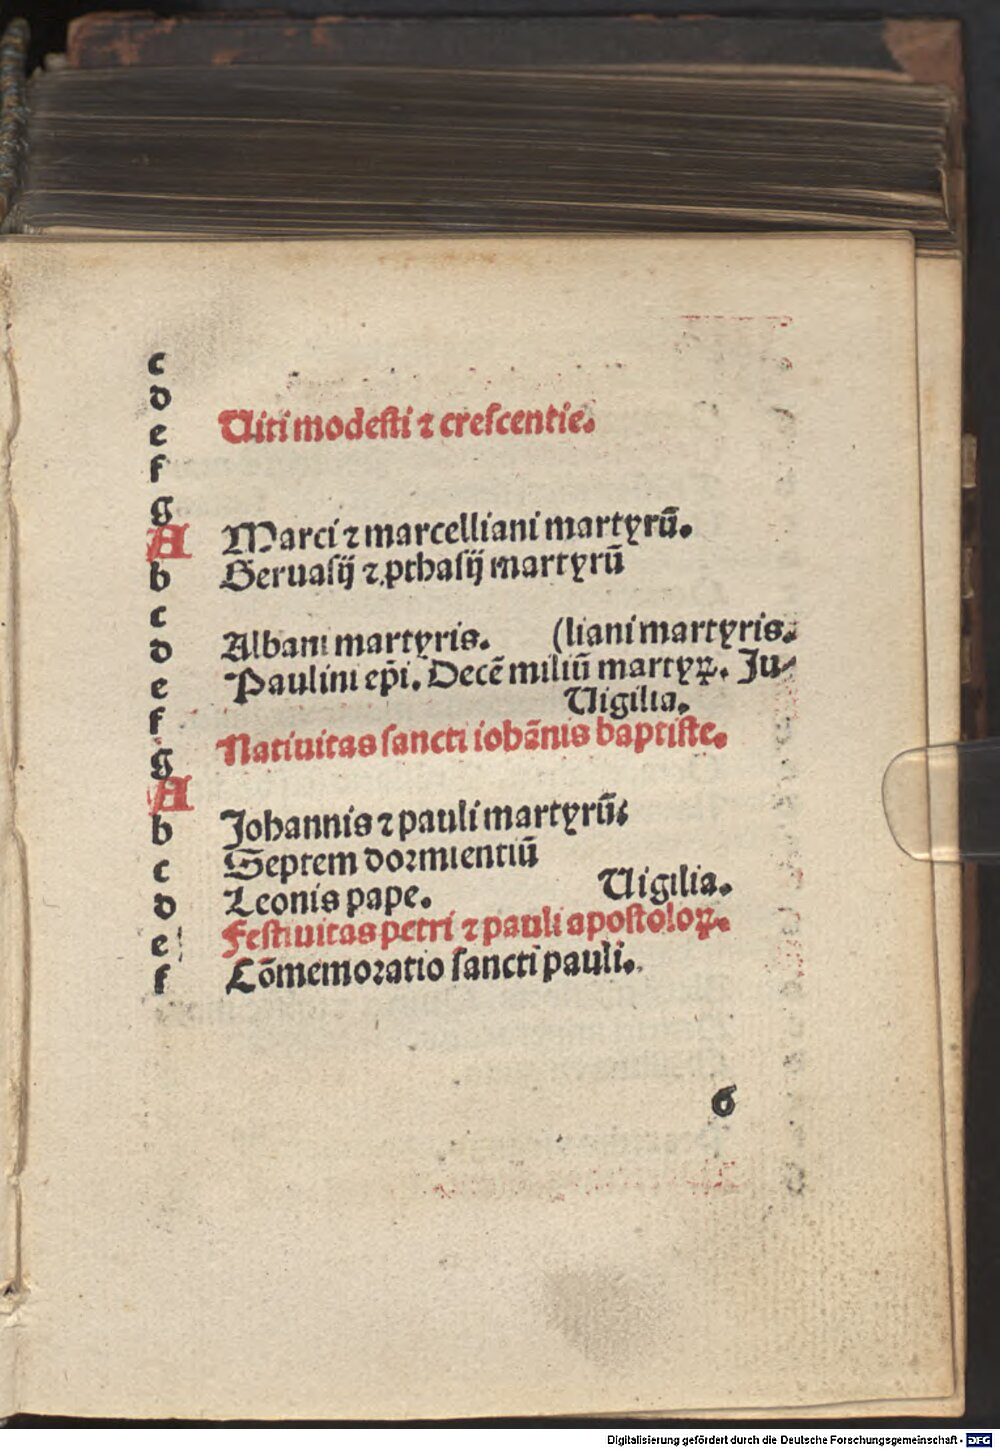 c
d
e Uiti modesti ⁊ crescentie.
f
g
A Marci ⁊ marcelliani martyrū.
b Geruasij ⁊ ꝓthasij martyrū
c
d Albani martyris. (liani martyris.
e Paulini ep̄i. Decē miliū martyꝝ. Ju⸗
f Uigilia.
g Natiuitas sancti iohānis baptiste.
A
b Johannis ⁊ pauli martyrū.
c Septem dormientiū
d Leonis pape. Uigilia.
e Festiuitas petri ⁊ pauli apostoloꝝ.
f Cōmemoratio sancti pauli.
6
Digitalisierung gefördert durch die Deutsche Forschungsgemeinschaft - DFG